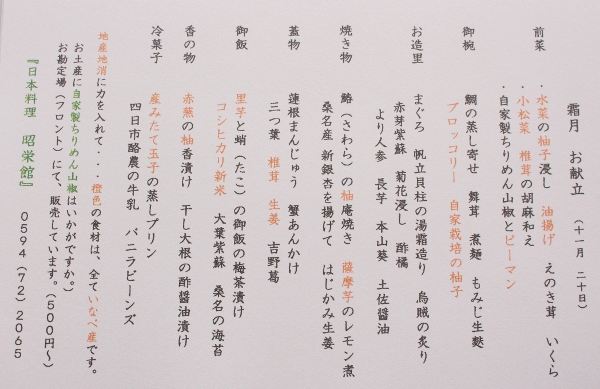 霜月 お献立 (十一月 二十日)
前菜 ・水菜の柚子浸し 油揚げ えのき茸 いくら
・小松菜 椎茸の胡麻和え
・自家製ちりめん山椒とピーマン
御椀 鯛の蒸し寄せ 舞茸 煮麺 もみじ生麩
ブロッコリー 自家栽培の柚子
お造里 まぐろ 帆立貝柱の湯霜造り 烏賊の炙り
赤芽紫蘇 菊花浸し 酢橘
より人参 長芋 本山葵 土佐醤油
焼き物 鰆(さわら)の柚庵焼き 薩摩芋のレモン煮
桑名産 新銀杏を揚げて はじかみ生姜
蓋物 蓮根まんじゅう 蟹あんかけ
三つ葉 椎茸 生姜 吉野葛
御飯 里芋と蛸(たこ)の御飯の梅茶漬け
コシヒカリ新米 大葉紫蘇 桑名の海苔
香の物 赤蕪の柚香漬け 干し大根の酢醤油漬け
冷菓子 産みたて玉子の蒸しプリン
四日市酪農の牛乳 バニラビーンズ
地産地消に力を入れて・・橙色の食材は、全ていなべ産です。
お土産に自家製ちりめん山椒はいかがですか。
お勘定場(フロント)にて、販売しています。(500円~)
『日本料理 昭栄館』 0594(72)2065